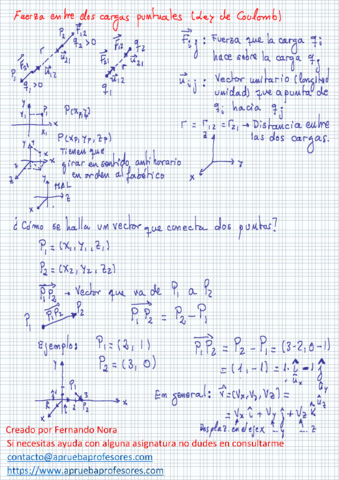 Fuerza entre dos cargas puntuales (Ley de Coulomb)
F⃗ij : Fuerza que la carga qi
hace sobre la carga qj
u⃗ij : Vector unitario (longitud
unidad) que apunta de
qi hacia qj
r = r12 = r21 → Distancia entre
las dos cargas.
P(x,y)
P(xp, yp, zp)
Tienen que
girar en sentido antihorario
en orden alfabético
MAL
¿Cómo se halla un vector que conecta dos puntos?
P1 = (x1, y1, z1)
P2 = (x2, y2, z2)
P1P2 → Vector que va de P1 a P2
P1P2 = P2 - P1
Ejemplo: P1 = (2, 1)
P2 = (3, 0)
P1P2 = P2 - P1 = (3-2, 0-1)
= (1, -1) = 1·î - 1·ĵ
En general: v⃗ = (vx, vy, vz) =
= vx î + vy ĵ + vz k̂
Desplaz. en el eje x y z
Creado por Fernando Nora
Si necesitas ayuda con alguna asignatura no dudes en consultarme
contacto@apruebaprofesores.com
https://www.apruebaprofesores.com